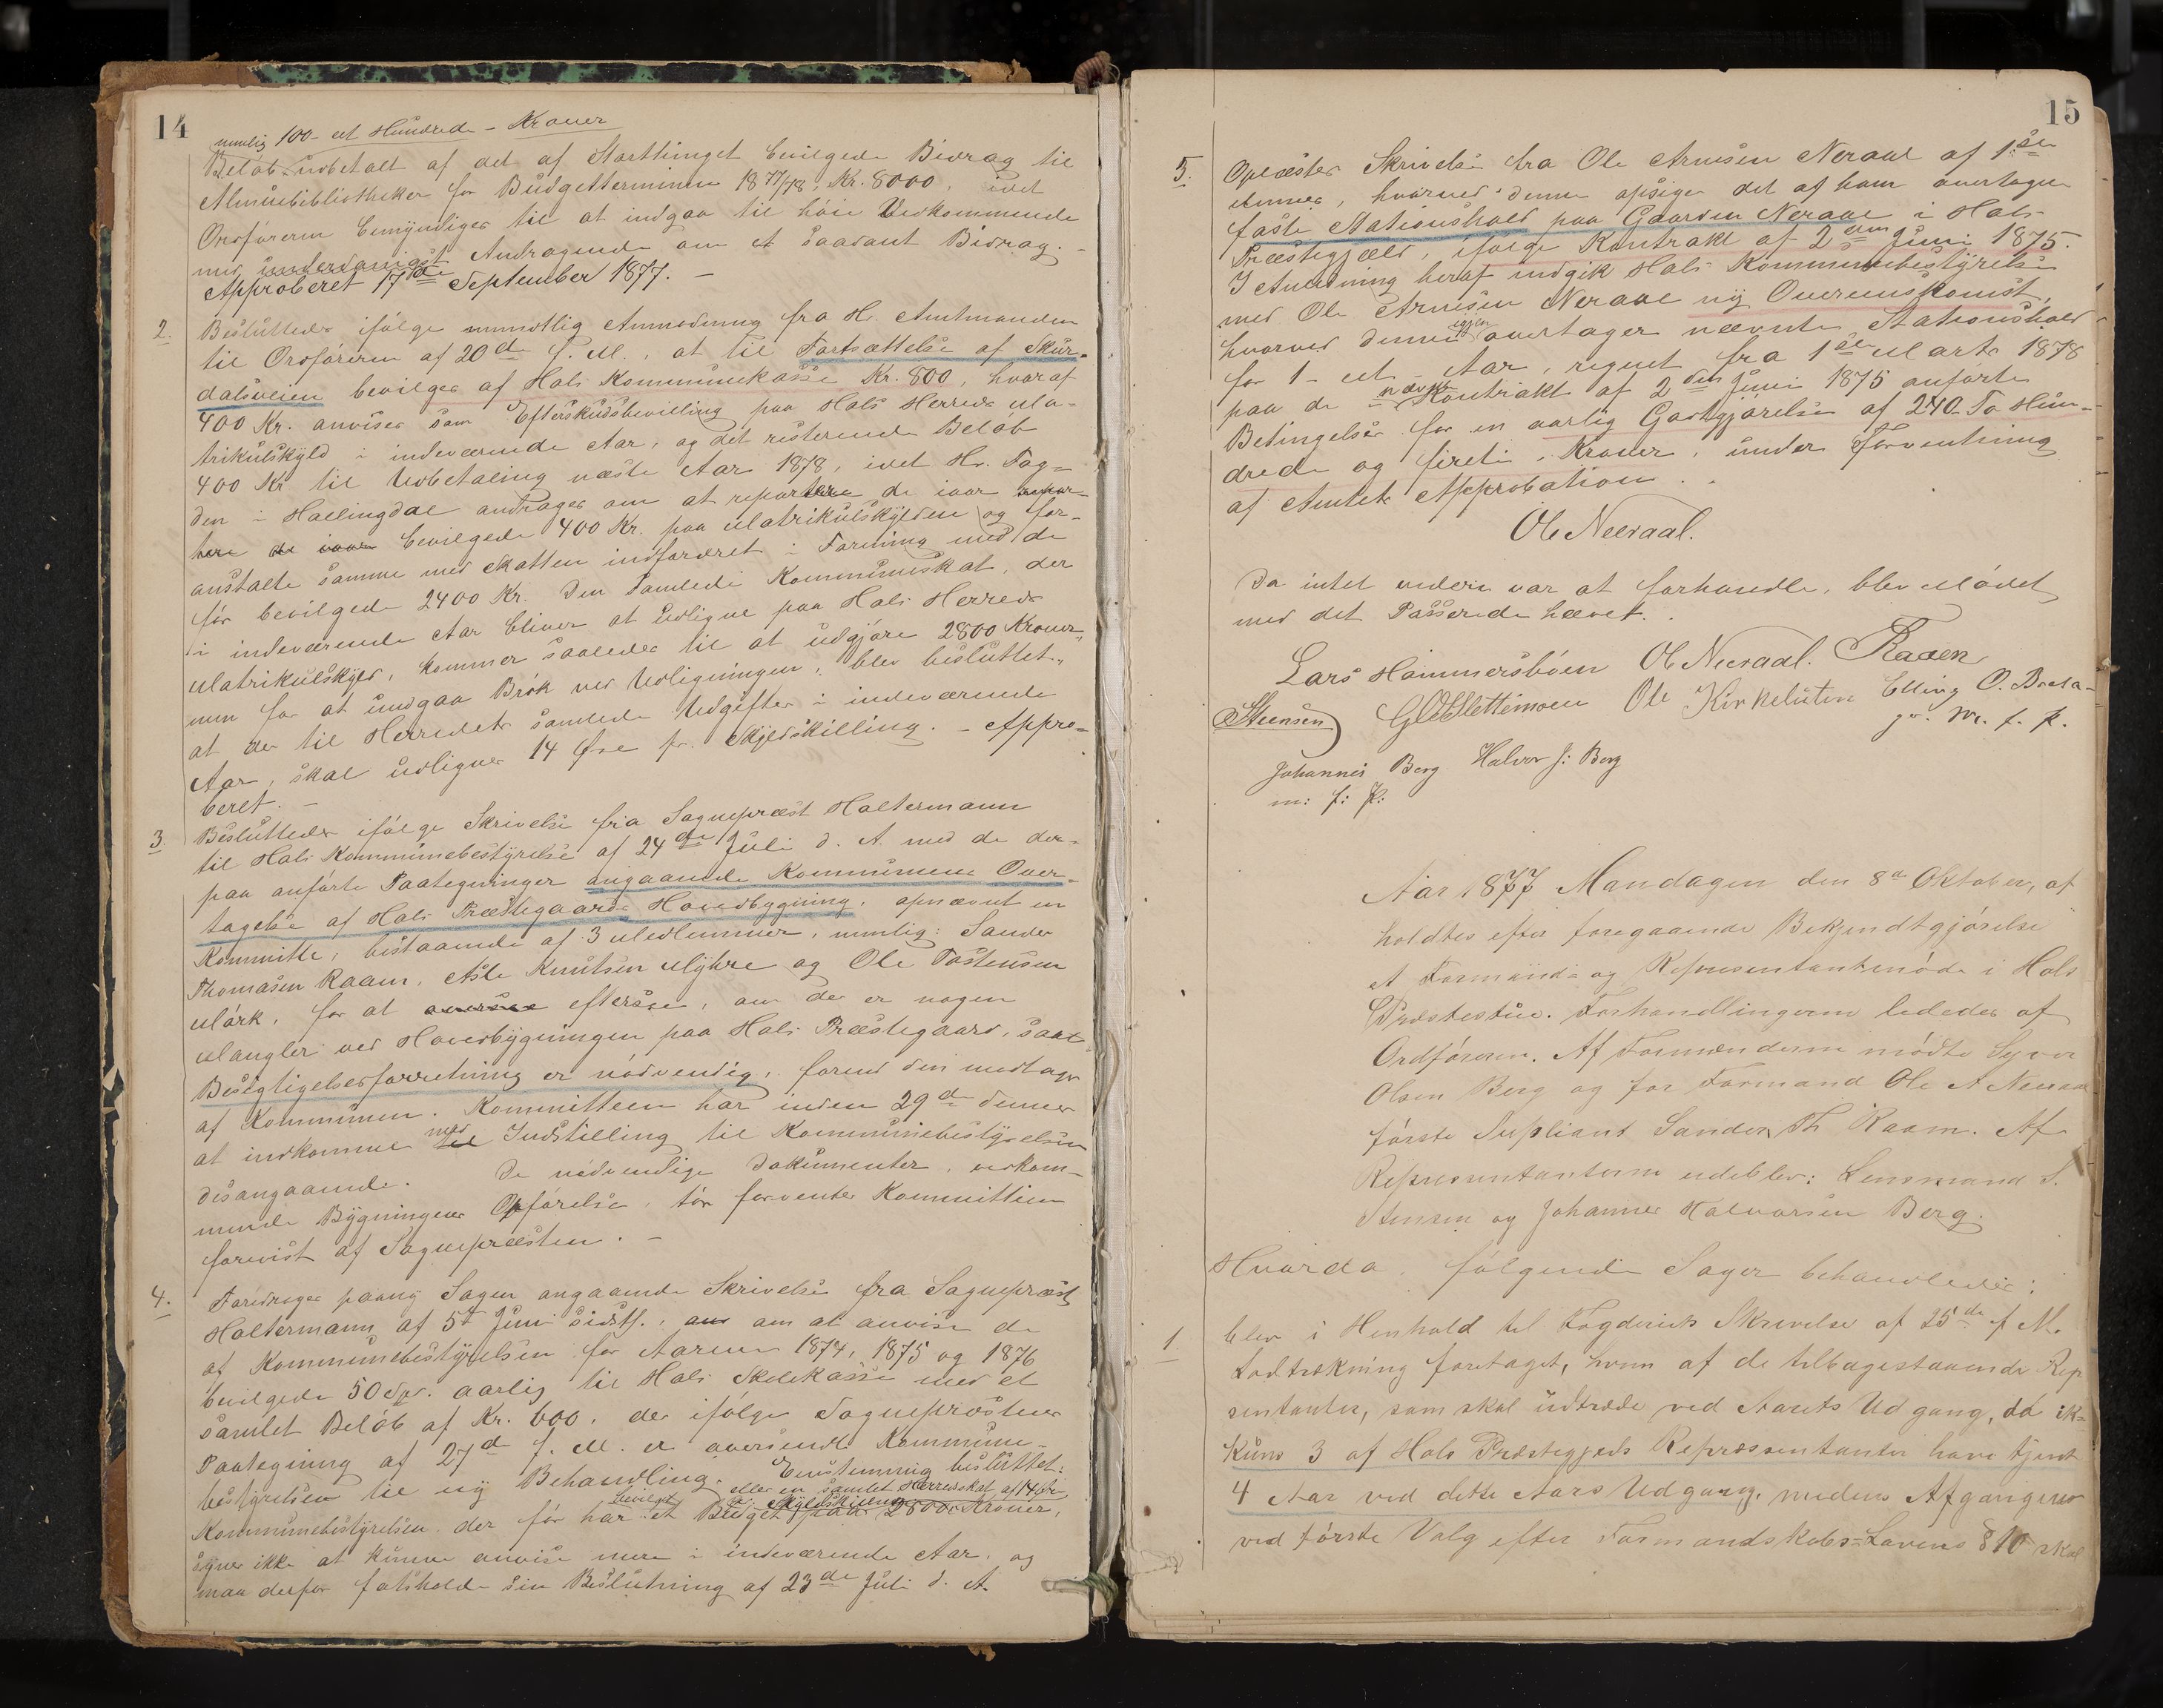 14
nemlig 100 - et Hundrede - Kroner
Beløb udbetalt af det af Storthinget bevilgede Bidrag til
Almuebibliotheker for Budgetterminen 1877/78, Kr. 8000, idet
Ordføreren bemyndiges til at indgaa til høie Vedkommende
med underdanigst Andragende om et saadant Bidrag. -
Approberet 17de September 1877. -
2. Besluttedes ifølge mundtlig Anmodning fra Hr. Amtmanden
til Ordføreren af 20de f. M., at til Fortsættelse af Skur-
dalsveien bevilges af Hols Kommunekasse Kr. 800, hvoraf
400 Kr. anvises som Efterskudsbevilling paa Hols Herreds Ma-
trikulskyld i indeværende Aar, og det resterende Beløb
400 Kr til Udbetaling næste Aar 1878, idet Hr. Fog-
den i Hallingdal andrages om at repartere de iaar
bevilgede 400 Kr. paa Matrikulskylden og for-
anstalte samme med Skatten indfordret i Forening med de
før bevilgede 2400 Kr. Den samlede Kommuneskat, der
i indeværende Aar bliver at udligne paa Hols Herreds
Matrikulskyld, kommer saaledes til at udgjøre 2800 Kroner,
men for at undgaa Brøk ved Udligningen, blev besluttet,
at der til Herredets samlede Udgifter i indeværende
Aar, skal udlignes 14 Øre pr. Skyldskilling. - Appro-
beret. -
3. Besluttedes ifølge Skrivelse fra Sognepræst Haltermann
til Hols Kommunebestyrelse af 24de Juli d. A. med de der-
paa anførte Paategninger angaaende Kommunens Over-
tagelse af Hols Præstegaards Hovedbygning, opnævnt en
Kommitte, bestaaende af 3 Medlemmer, nemlig: Sander
Thomasen Raaen, Asle Knutsen Myhre og Ole Tostensen
Mørk, for at eftersee, om der er nogen
Mangler ved Hovedbygningen paa Hols Præstegaard, samt
Besigtigelsesforretning er nødvendig, forend den modtages
af Kommunen. Kommitteen har inden 29de dennes
at indkomme med Indstilling til Kommunebestyrelsen
desangaaende. De nødvendige Dokumenter, vedkom-
mende Bygningens Opførelse, tør forventes Kommitteen
forevist af Sognepræsten. -
4. Foredroges paany Sagen angaaende Skrivelse fra Sognepræst
Haltermann af 5te Juni sidstl., om at anvise de
af Kommunebestyrelsen for Aarene 1874, 1875 og 1876
bevilgede 50 Spd. aarlig til Hols Skolekasse med et
samlet Beløb af Kr. 600, der ifølge Sognepræstens
Paategning af 27de f. M. er oversendt Kommune-
bestyrelsen til ny Behandling. Eenstemmig besluttet:
eller en samlet Herredsskat af 14 Øre
bevilget pr. Skyldskilling
Kommunebestyrelsen, der før har et Budget paa 2800 Kroner,
synes ikke at kunne anvise mere i indeværende Aar, og
maa derfor fatsholde sin Beslutning af 23de Juli d. A.
15
5. Oplæstes Skrivelse fra Ole Arnesen Neraal af 1ste
dennes, hvorved denne opsiger det af ham overtagne
faste Stationshold paa Gaarden Neraal i Hols
Præstegjæld, ifølge Kontrakt af 2den Juni 1875.
I Anledning heraf indgik Hols Kommunebestyrelse
med Ole Arnesen Neraal ny Overenskomst,
hvorved denne igjen overtager nævnte Stationshold
for 1 - et - Aar, regnet fra 1ste Marts 1878
paa de i nævnte Kontrakt af 2den Juni 1875 anførte
Betingelser for en aarlig Godtgjørelse af 240 To Hun-
drede og fireti, Kroner, under Forventning
af Amtets Approbation.
Ole Neeraal.
Da intet videre var at forhandle, blev Mødet
med det Passerede hævet.
Lars Hammersbøen Ole Neeraal. Raaen
Steensen G O Slettemoen Ole Kirkeluten Elling O. Breta-
m. f. p.
Johannes Berg Halvor J: Berg
m: f: P:
Aar 1877 Mandagen den 8de Oktober, af
holdtes efter foregaaende Bekjendtgjørelse
et Formænd- og Representantmøde i Hols
Præstestue. Forhandlingerne lededes af
Ordføreren. Af Formændene mødte Syver
Olsen Berg og for Formand Ole A Neeraal
første Supliant Sander Th Raaen. Af
Representanterne udeblev: Lensmand S.
Steensen og Johannes Halvorsen Berg.
Hvorda følgende Sager behandledes:
1 blev i Henhold til Fogderiets Skrivelse af 25de f M.
Lodtrækning foretaget, hvem af de tilbagestaaende Rep
sentanter, som skal udtræde ved Aarets Udgang, da ik-
kuns 3 af Hols Præstegjelds Repræsentanter have tjent
4 Aar ved dette Aars Udgang, medens Afgangene
ved første Valg efter Formandskabs-Lovens § 10 skal